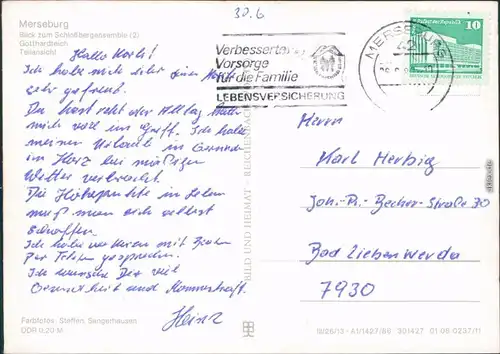 30.6
Merseburg
Blick zum Schloßbergensemble (2)
Gotthardteich
Teilansicht
Hallo Karl!
Ich habe mich sehr Deine Karte
sehr gefreut.
Du hast recht der Alltag hat
mich voll im Griff. Ich habe
meinen Urlaub in Gernrode
im Harz bei mäßigem
Wetter verbracht.
Die Höhepunkte im Leben
muß man sich selbst
schaffen.
Ich habe vor kurzem mit
Per Telefon gesprochen.
Ich wünsche Dir viel
Gesundheit und Mannschaft.
Heinz
Farbfotos: Steffen, Sangerhausen
DDR 0,20 M
BILD UND HEIMAT REICHENBACH
Verbesserte
Vorsorge
für die Familie
LEBENSVERSICHERUNG
MERSEBURG
42
DDR 10
Herrn
Karl Herbig
Joh.-R.-Becher-Straße 30
Bad Liebenwerda
7930
III/26/13 · A1/1427/86 301427 01 06 0237/11